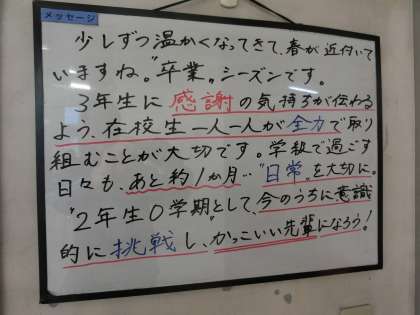 メッセージ
少しずつ温かくなってきて、春が近付いて
いますね。"卒業"シーズンです。
3年生に感謝の気持ちが伝わる
よう、在校生一人一人が全力で取り
組むことが大切です。学校で過ごす
日々も、あと約1か月…"日常"を大切に。
"2年生0学期"として、今のうちに意識
的に挑戦し、かっこいい先輩になろう!